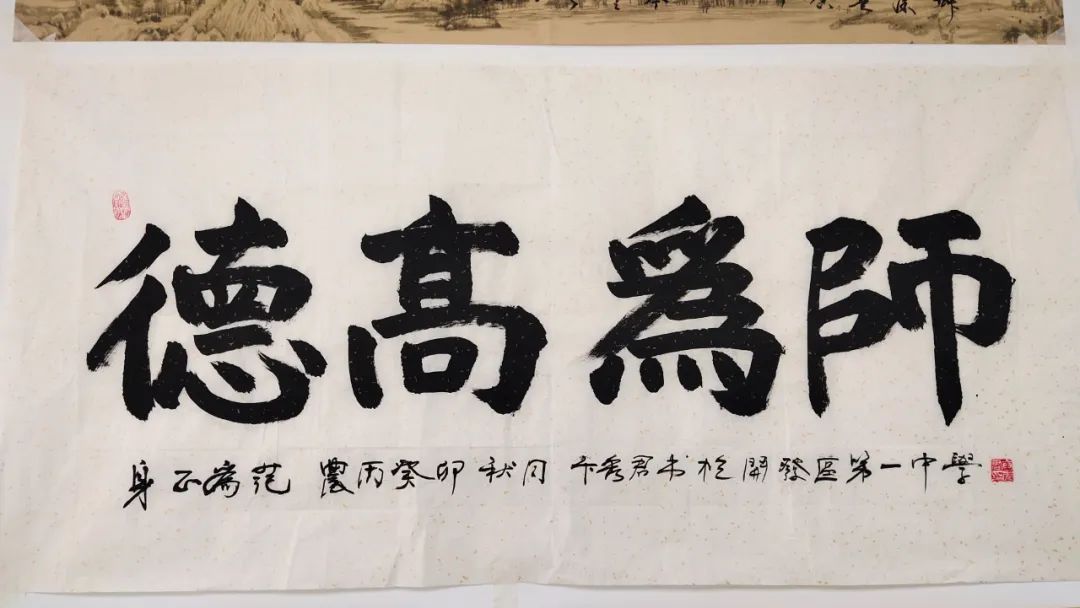 德高為師
身正為范 農历癸卯秋月 卞秀君书於開發区第一中學